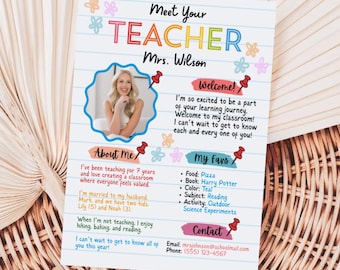 Meet Your
TEACHER
Mrs. Wilson
Welcome!
I'm so excited to be a part
of your learning journey.
Welcome to my classroom!
I can't wait to get to know
each and every one of you!
About Me
I'm teaching for 7 years
and love creating a classroom
where everyone feels valued.
I'm married to my husband,
Mark, and we have two kids,
Lily (5) and Noah (3).
When I'm not teaching, I enjoy
hiking, baking, and reading.
I can't wait to get to know all of
you this year!
My Favs
• Food: Pizza
• Book: Harry Potter
• Color: Teal
• Subject: Reading
• Activity: Outdoor
Science Experiments
Contact
Phone: (555) 123-4567